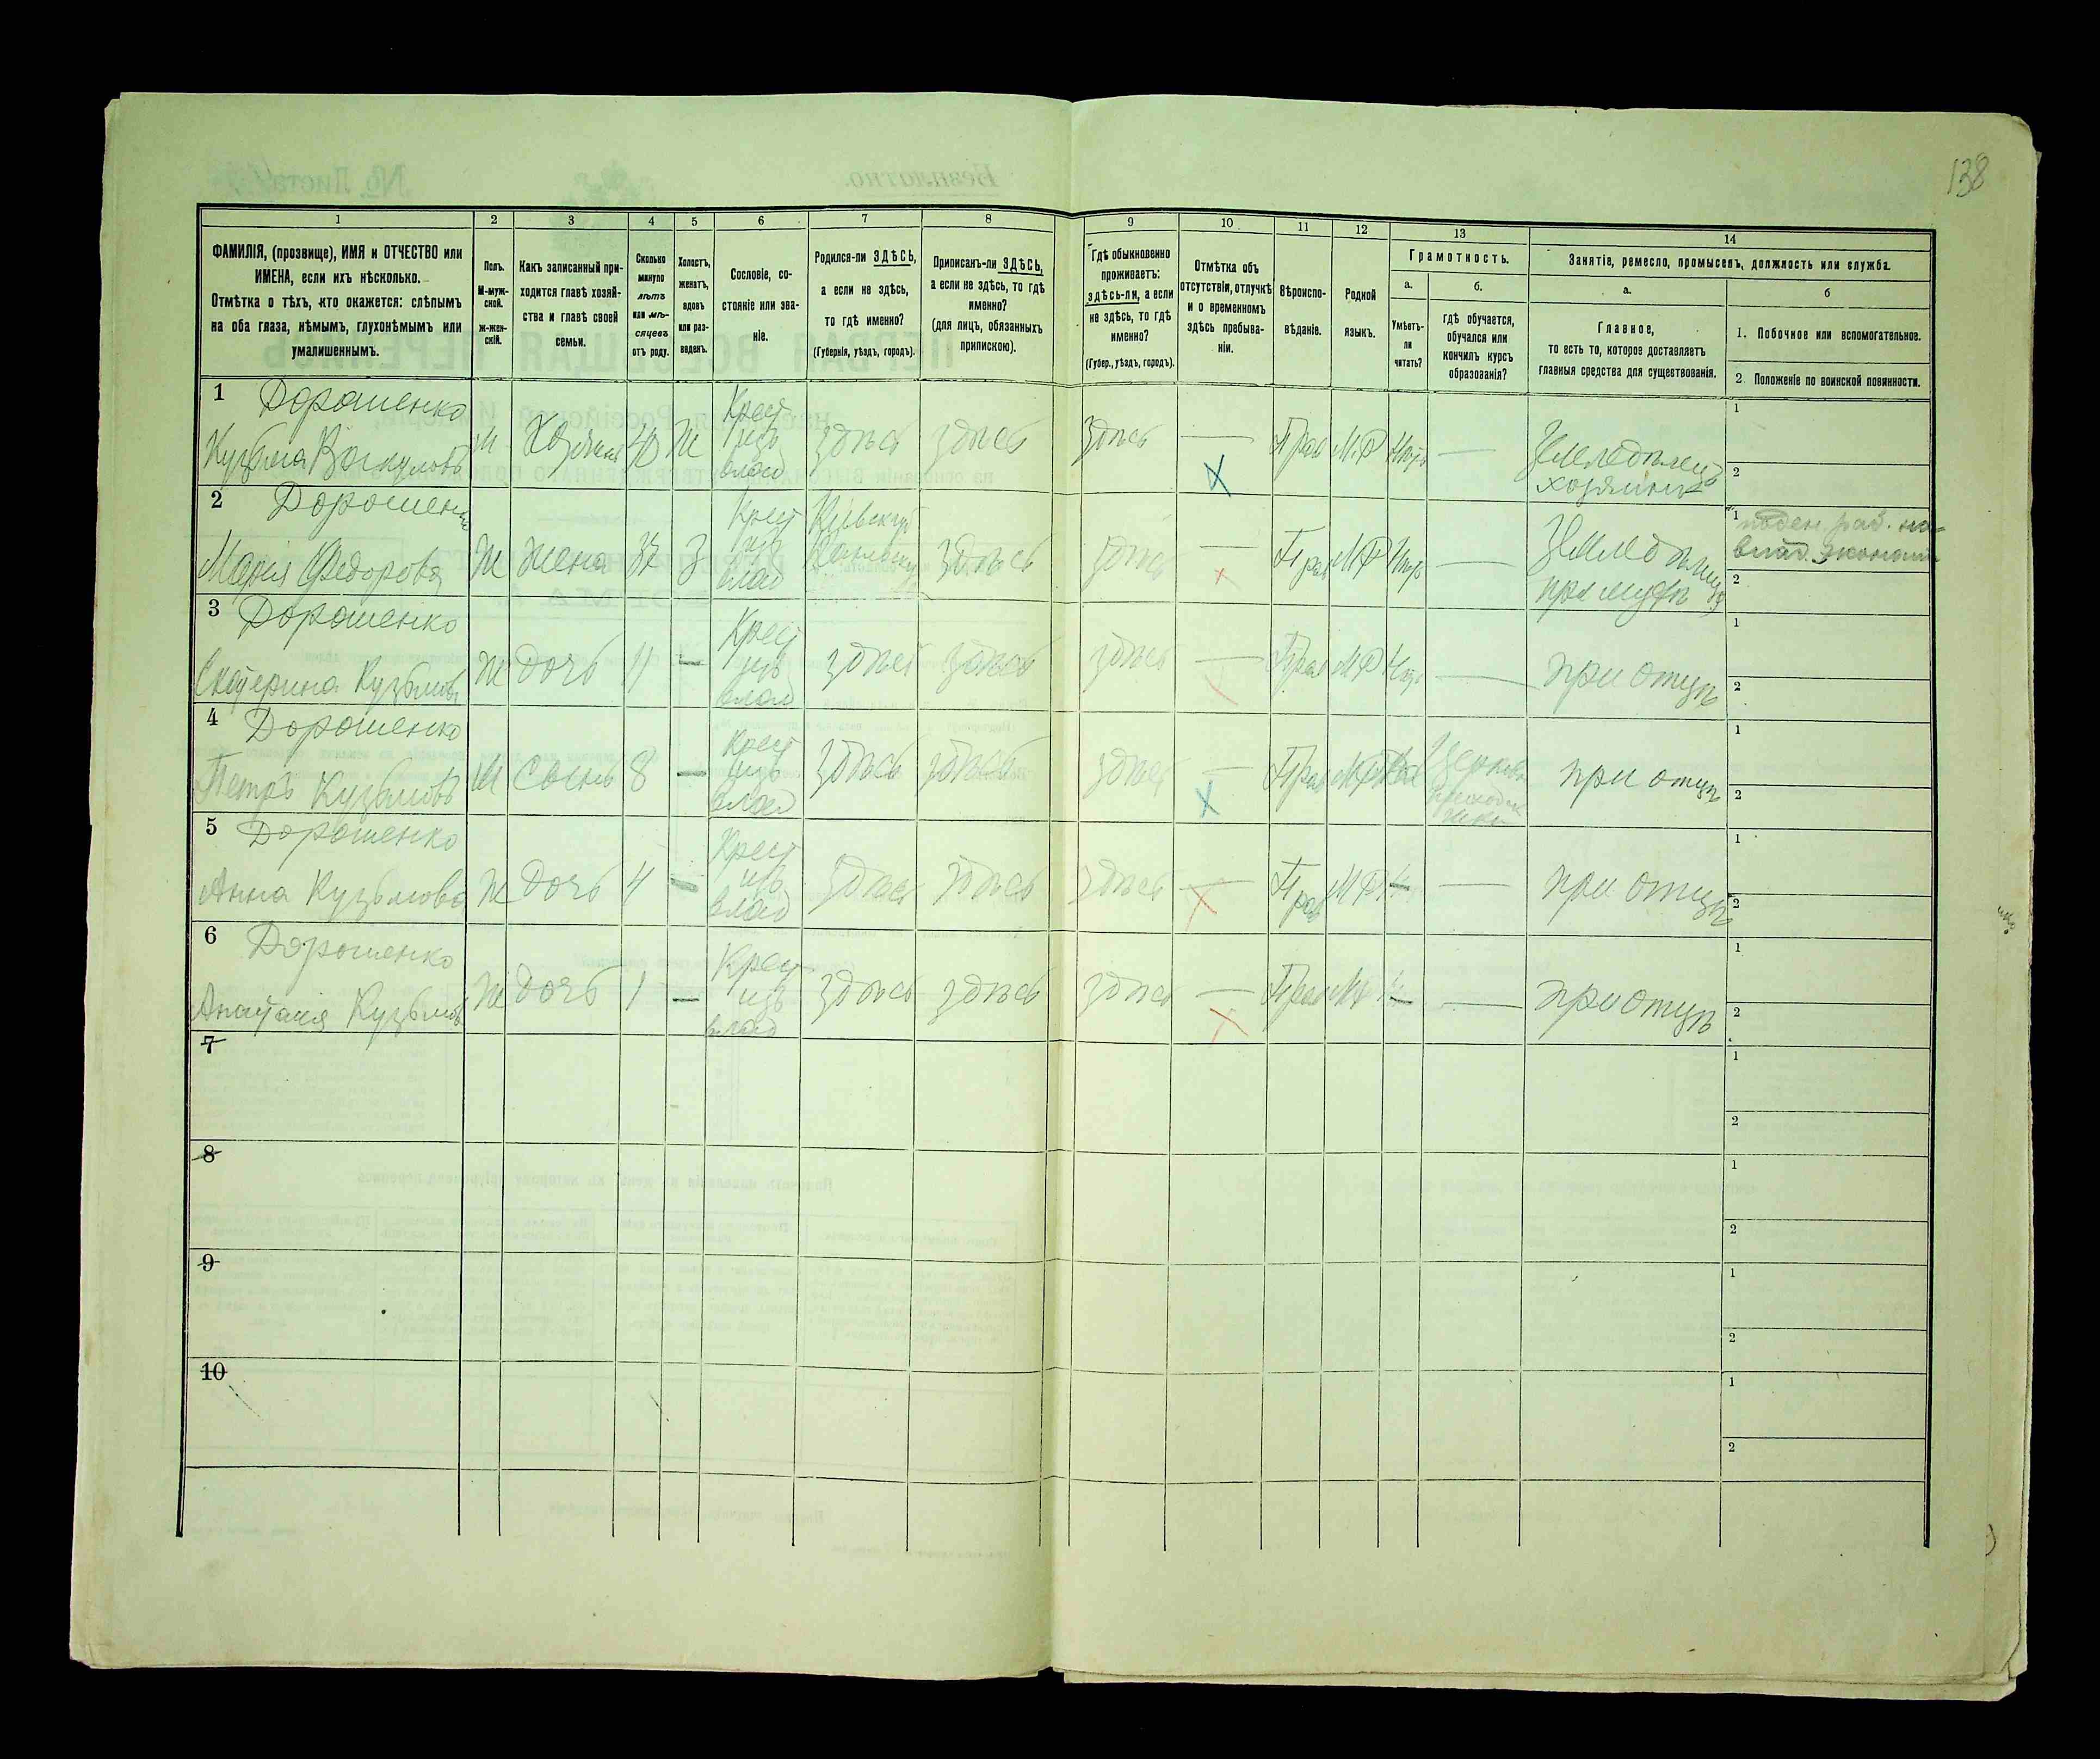 138
1
2
3
4
5
6
7
8
9
10
11
12
13
14
ФАМИЛІЯ, (прозвище), ИМЯ и ОТЧЕСТВО или
ИМЕНА, если ихъ нѣсколько.
Отмѣтка о тѣхъ, кто окажется: слѣпымъ
на оба глаза, нѣмымъ, глухонѣмымъ или
умалишеннымъ.
Полъ.
М-муж-
ской.
ж-жен-
скій.
Какъ записанный при-
ходится главѣ хозяй-
ства и главѣ своей
семьи.
Сколько
минуло
лѣтъ
или мѣ-
сяцевъ
отъ роду.
Холостъ,
женатъ,
вдовъ
или раз-
веденъ.
Сословіе, со-
стояніе или зва-
ніе.
Родился-ли ЗДѢСЬ,
а если не здѣсь,
то гдѣ именно?
(Губернія, уѣздъ, городъ).
Приписанъ-ли ЗДѢСЬ,
а если не здѣсь, то гдѣ
именно?
(для лицъ, обязанныхъ
припискою).
Гдѣ обыкновенно
проживаетъ:
здѣсь-ли, а если
не здѣсь, то гдѣ
именно?
(Губер., уѣздъ, городъ).
Отмѣтка объ
отсутствіи, отлучкѣ
и о временномъ
здѣсь пребыва-
ніи.
Вѣроиспо-
вѣданіе.
Родной
языкъ.
Грамотность.
а.
Умѣетъ-
ли
читать?
б.
гдѣ обучается,
обучался или
кончилъ курсъ
образованія?
Занятіе, ремесло, промыселъ, должность или служба.
а.
Главное,
то есть то, которое доставляетъ
главныя средства для существованія.
б
1. Побочное или вспомогательное.
2. Положеніе по воинской повинности.
1 Дорошенко
Кузьма
М Хозяинъ 40 Ж
Крест
изъ
влад
здѣсь здѣсь здѣсь — Прав
Земледѣлецъ
хозяинъ
1
2
2 Дорошенко
Марія Федорова
Ж Жена 37 З
Крест
изъ
влад
Кіевская
здѣсь здѣсь — Прав —
при мужѣ
1 поден. раб. на
влад. эконом
2
3 Дорошенко
Екатерина Кузьмова
Ж дочь 11 —
Крест
изъ
влад
здѣсь здѣсь здѣсь — Прав —
при отцѣ
1
2
4 Дорошенко
Петръ Кузьмовъ
М Сынъ 8 —
Крест
изъ
влад
здѣсь здѣсь здѣсь — Прав
при отцѣ
1
2
5 Дорошенко
Анна Кузьмова
Ж дочь 4 —
Крест
изъ
влад
здѣсь здѣсь здѣсь — Прав —
при отцѣ
1
2
6 Дорошенко
Анастасія
Ж дочь 1 —
Крест
изъ
влад
здѣсь здѣсь здѣсь — Прав —
при отцѣ
1
2
7
1
2
8
1
2
9
1
2
10
1
2